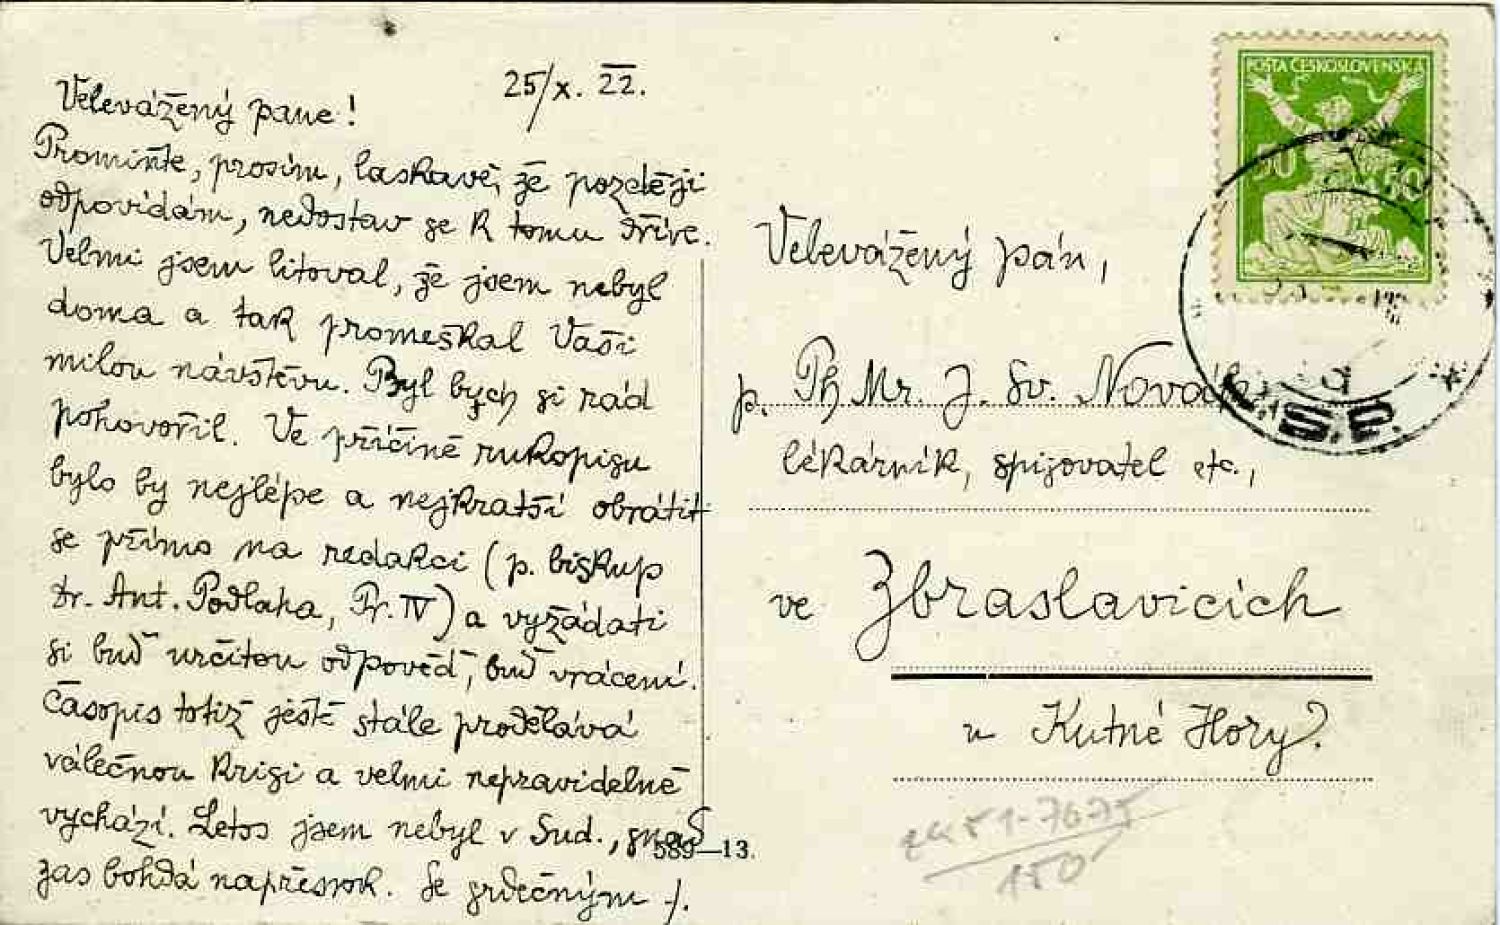 25/X. 22.
Velevážený pane!
Promiňte, prosím, laskavě, že později
odpovídám, nedostav se k tomu dříve.
Velmi jsem litoval, že jsem nebyl
doma a tak promeškal Vaši
milou návštěvu. Byl bych si rád
pohovořil. Ve příčině rukopisu
bylo by nejlépe a nejkratší obrátit
se přímo na redakci (p. biskup
dr. Ant. Podlaha, Pr. IV) a vyžádati
si buď určitou odpověď, buď vrácení.
Časopis totiž ještě stále prodělává
válečnou krisi a velmi nepravidelně
vychází. Letos jsem nebyl v Sud., snaď
zas bohdá napřesrok. Se srdečným
589—13.
POŠTA ČESKOSLOVENSKÁ
50 50
Velevážený pán,
p. Ph Mr. J. Sv. Novák
lékárník, spisovatel etc.,
ve Zbraslavicích
u Kutné Hory.
150